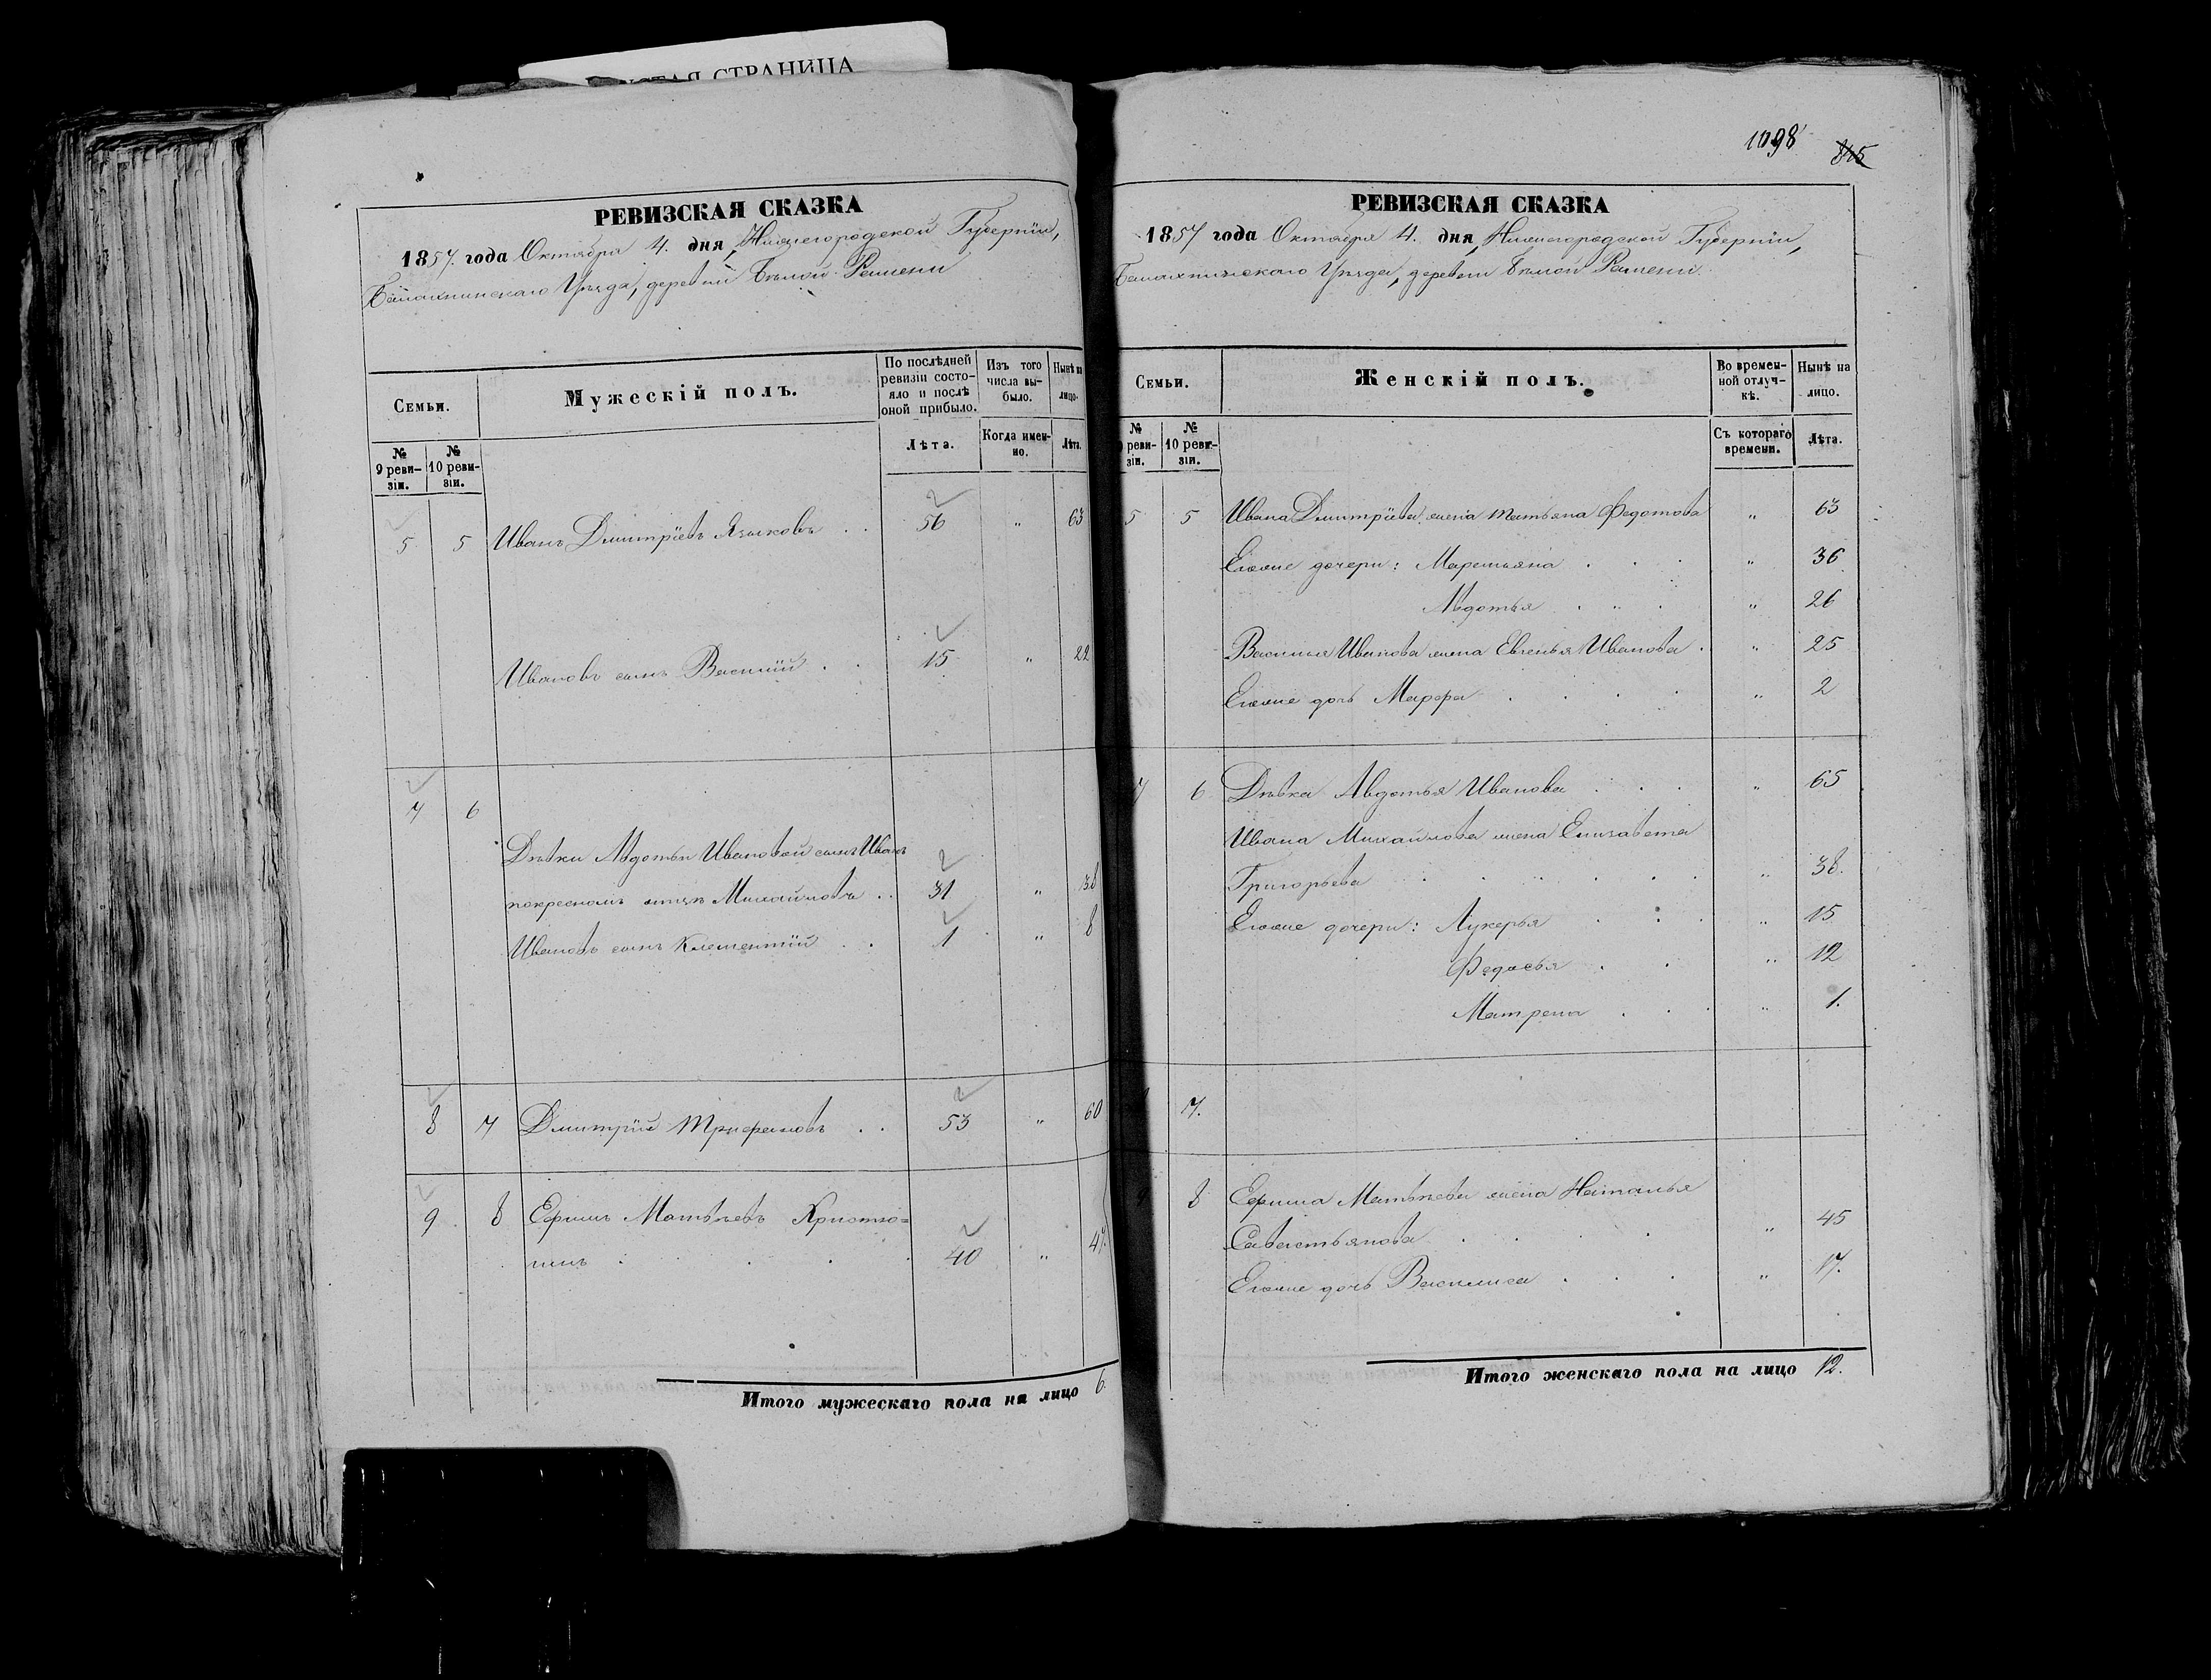 ЧИСТАЯ СТРАНИЦА
РЕВИЗСКАЯ СКАЗКА
1857. года Октября 4. дня, Нижегородской Губернiи,
Балахнинскаго Уѣзда, деревни Бѣлой Рамени
Семьи.
Мужескiй полъ.
По послѣдней ревизiи состояло и послѣ оной прибыло.
Изъ того числа выбыло.
Нынѣ на лицо.
№ 9 ревизiи.
№ 10 ревизiи.
Лѣта.
Когда именно.
Лѣта.
5 5 Иванъ Дмитрiевъ Языковъ . . 56 " 63
Ивановъ сынъ Василiй . . 15 " 22
7 6
Дѣвки Авдотьи Ивановой сынъ Иванъ
покрестномъ отцѣ Михайловъ . . 31 " 38
Ивановъ сынъ Клементiй . . 1 " 8
8 7 Дмитрiй Трифановъ . . 53 " 60
9 8 Ефимъ Матвѣевъ
40 " 47.
Итого мужескаго пола на лицо 6.
1098
815
РЕВИЗСКАЯ СКАЗКА
1857 года Октября 4. дня, Нижегородской Губернiи,
Балахнинскаго Уѣзда, деревни Бѣлой Рамени.
Семьи.
Женскiй полъ.
Во временной отлучкѣ.
Нынѣ на лицо.
№ ревизiи.
№ 10 ревизiи.
Съ котораго времени.
Лѣта.
5 5 Ивана Дмитрiева жена Татьяна Федотова " 63
Егоже дочери: Маремьяна . . . " 36
Авдотья . . . " 26
Василья Иванова жена Евгенья Иванова . " 25
Егоже дочь Марфа . . . . " 2
7 6 Дѣвка Авдотья Иванова . . . " 65
Ивана Михайлова жена Елизавета
Григорьева . . . . . . " 38.
Егоже дочери: Лукерья . . . " 15
Федосья . . " 12
Матрена . . . " 1.
7.
9 8 Ефима Матвѣева жена Наталья
Савастьянова . . . . " 45
Егоже дочь Василиса . . . " 17.
Итого женскаго пола на лицо 12.